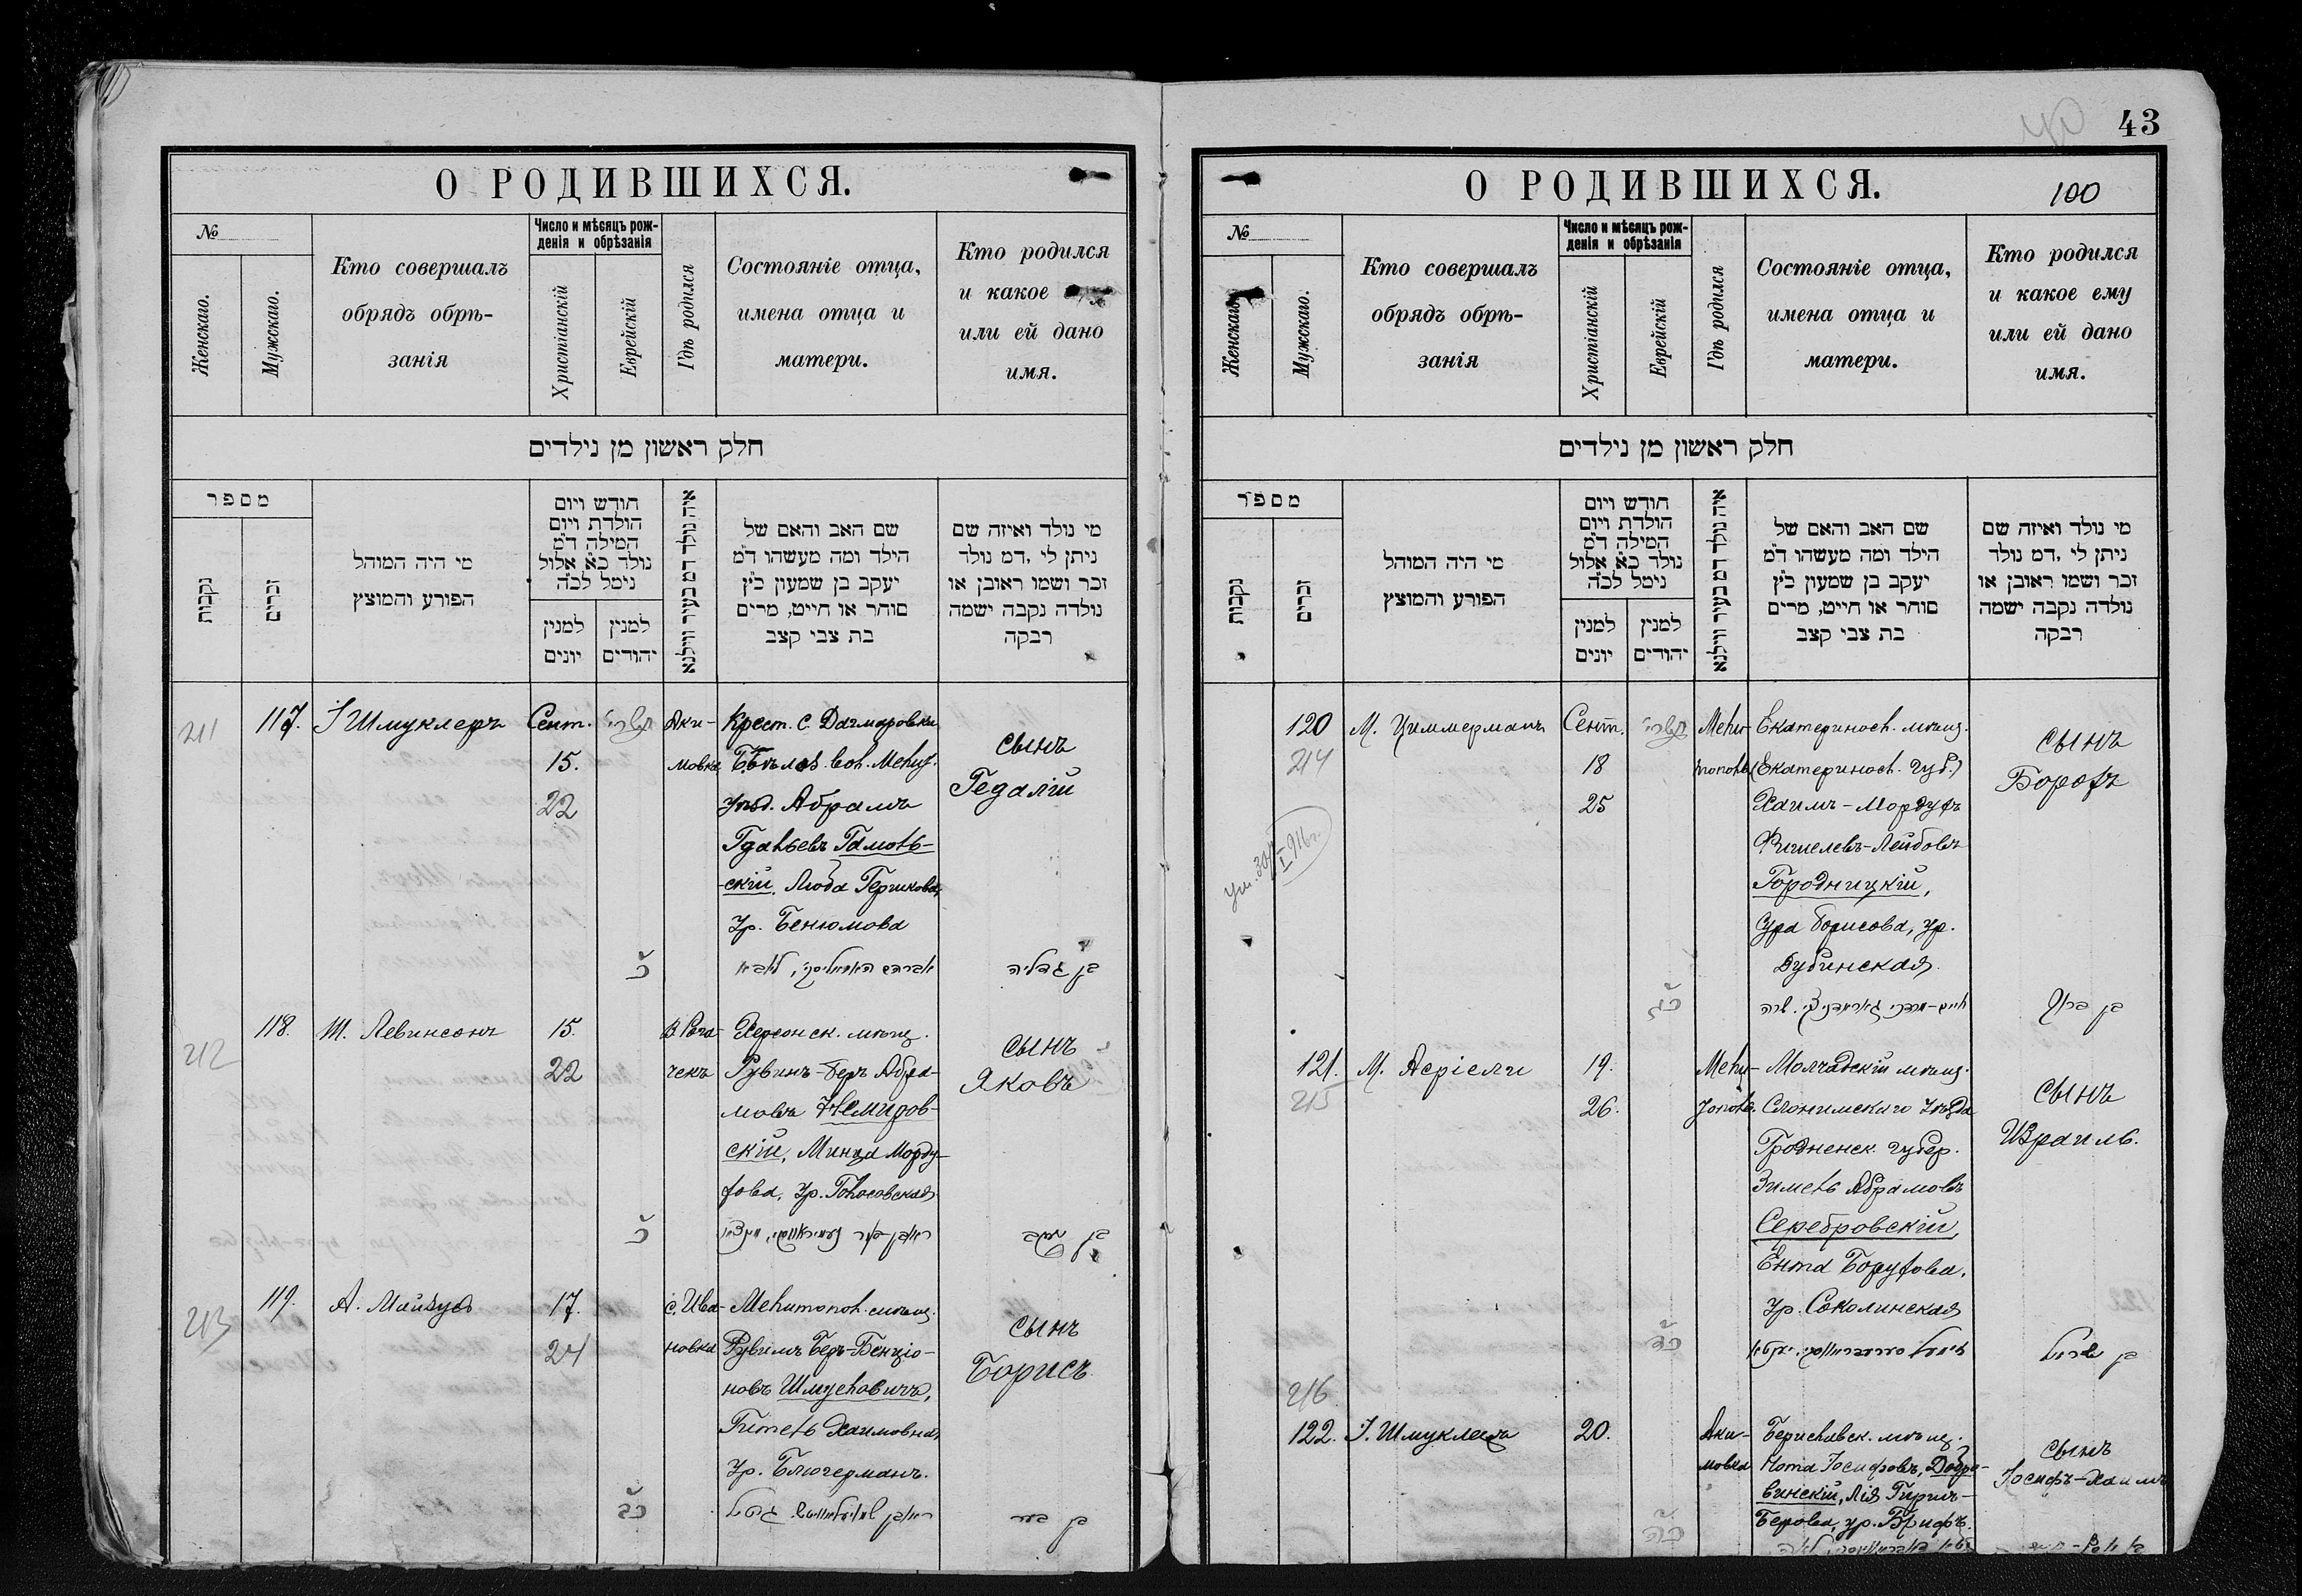 43
О РОДИВШИХСЯ.
№
Женскаго.
Мужскаго.
Кто совершалъ
обрядъ обрѣ-
занія
Число и мѣсяцъ рож-
денія и обрѣзанія
Христіанскій
Еврейскій
Гдѣ родился
Состояніе отца,
имена отца и
матери.
Кто родился
и какое
или ей дано
имя.
חלק ראשון מן נילדים
מספר
נקבות
זכרים
מי היה המוהל
הפורע והמוצץ
חודש ויום
הולדת ויום
המילה ד"מ
נולד כ"א אלול
נימל לכ"ה
למנין
יונים
למנין
יהודים
איה נולד דמ בעיר ווילנא
שם האב והאם של
הילד ומה מעשהו ד"מ
יעקב בן שמעון כ"ץ
סוחר או חייט, מרים
בת צבי קצב
מי נולד ואיזה שם
ניתן לי, דמ נולד
זכר ושמו ראובן או
נולדה נקבה ישמה
רבקה
211
117.
І Шмуклеръ
Сент.
15.
22
תשרי
כ
Аки-
мовка
Крест. с.
вол. Мелит.
уѣзд. Абрамъ
Гдальевъ Гамоль-
скій, Люба Гершкова,
ур. Бенюмова
сынъ
Гедалій
בן גדליה
212
118.
Ш. Левинсонъ
15.
22
כ
В Рога-
чекъ
Херсонск. мѣщ.
Рувинъ-Беръ Абра-
мовъ Немиров-
скій, Минца Морду-
хова, ур.
сынъ
Яковъ
בן יעקב
213
119.
А.
17.
24
כב
с. Ива-
новка
Мелитопол. мѣщ.
Рувимъ Беръ-Бенціо-
новъ Шмулевичъ,
Гитель Хаимовна,
ур. Блюгерманъ.
сынъ
Борисъ
בן בער
О РОДИВШИХСЯ.
100
№
Женскаго.
Мужскаго.
Кто совершалъ
обрядъ обрѣ-
занія
Число и мѣсяцъ рож-
денія и обрѣзанія
Христіанскій
Еврейскій
Гдѣ родился
Состояніе отца,
имена отца и
матери.
Кто родился
и какое ему
или ей дано
имя.
חלק ראשון מן נילדים
מספר
נקבות
זכרים
מי היה המוהל
הפורע והמוצץ
חודש ויום
הולדת ויום
המילה ד"מ
נולד כ"א אלול
נימל לכ"ה
למנין
יונים
למנין
יהודים
איה נולד דמ בעיר ווילנא
שם האב והאם של
הילד ומה מעשהו ד"מ
יעקב בן שמעון כ"ץ
סוחר או חייט, מרים
בת צבי קצב
מי נולד ואיזה שם
ניתן לי, דמ נולד
זכר ושמו ראובן או
נולדה נקבה ישמה
רבקה
120
214
М. Циммерманъ
Сент.
18
25
תשרי
כג
Мели-
тополь
Екатериносл. мѣщ.
(Екатериносл. губ.)
Хаимъ-Мордухъ
Фишелевъ-Лейбовъ
Городницкій,
Сура Борисова, ур.
Дубинская.
сынъ
Борохъ
בן ברוך
121.
215
М. Асріели
19.
26.
כד
Мели-
топол.
Молчадскій мѣщ.
Слонимскаго уѣзда
Гродненск. губер.
Зимель Абрамовъ
Серебровскій,
Ента Борухова,
ур. Соколинская
сынъ
Израиль.
בן ישראל
216
122.
І. Шмуклеръ
20.
כה
Аки-
мовка
Бериславск. мѣщ.
Нота Іосифовъ, Добро-
винскій, Лія Гиршъ-
Берова, ур.
сынъ
Іосифъ-Хаимъ